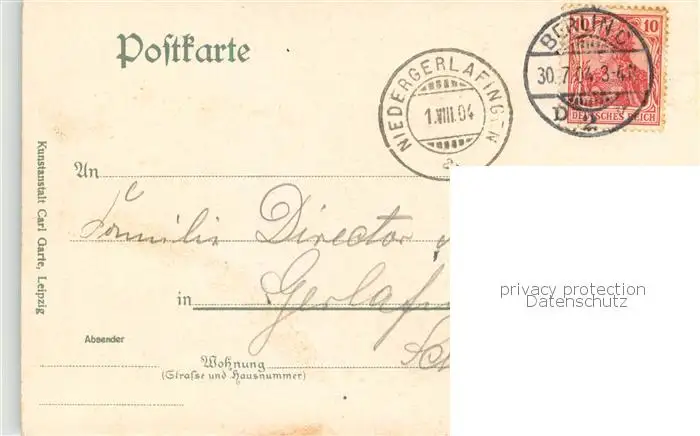 Postkarte
10 10
DEUTSCHES REICH
BERLIN C
30.7.04. 3-4N
2
NIEDERGERLAFINGEN
1.VIII.04
An
Familie Director
in Gerlafi
Absender
Wohnung
(Straße und Hausnummer)
Kunstanstalt Carl Garte, Leipzig
privacy protection
Datenschutz